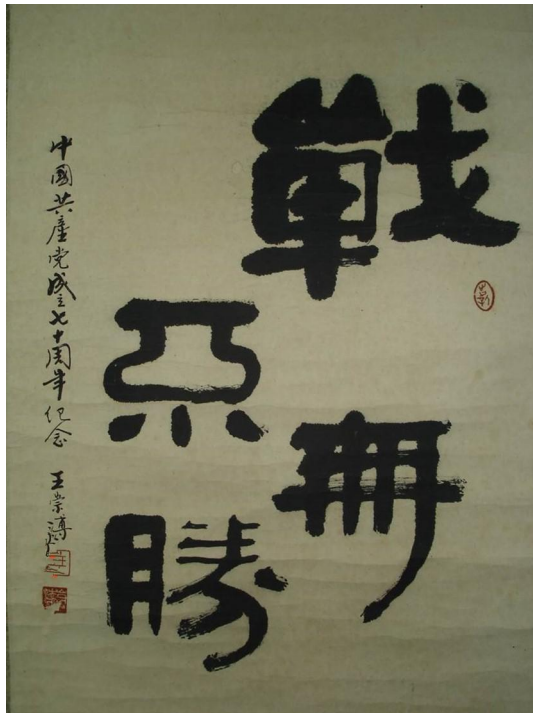 戰毋
不勝
中國共產党成立七十周年纪念 王崇